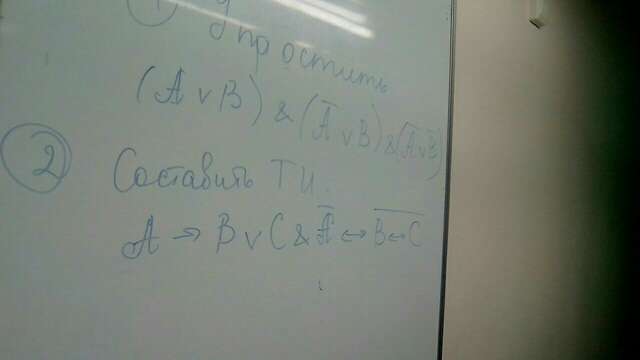 1) Упростить
(A v B) & (A̅ v B) & (A̅ v B̅)
2 Составить ТИ.
A → B v C & A̅ ↔ \overline{B ↔ C}